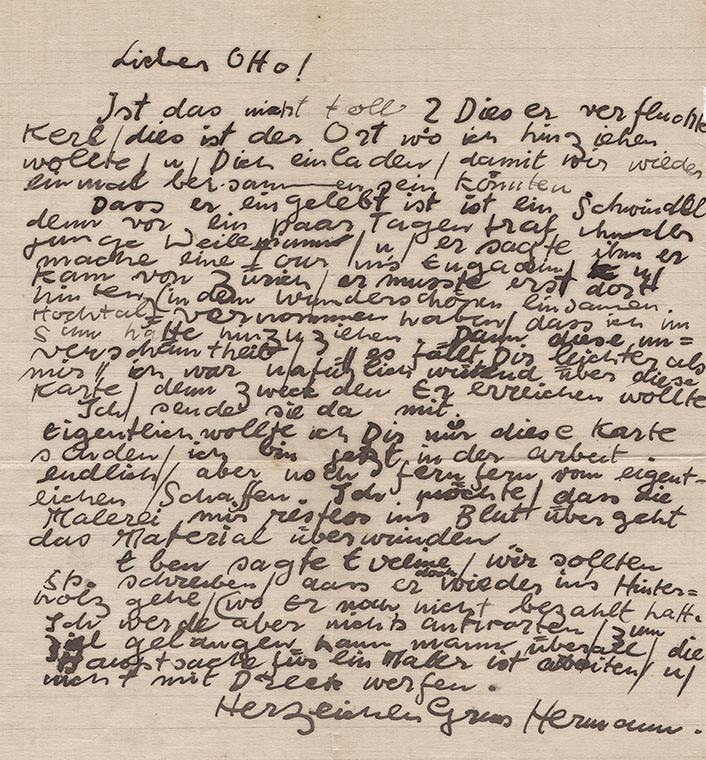 Lieber Otto!
Ist das nicht toll? Dieser verfluchte
Kerl / dies ist der Ort wo ich hinziehen
wollte / u / Dich einladen / damit wir wieder
einmal beisammen sein könnten
Dass er eingelebt ist ist ein Schwindel
denn vor ein paar Tagen traf ihn der
junge / u / er sagte ihm er
mache eine Tour ins Engadin / u /
kam von Zürich / er musste erst dort
hinten (in dem wunderschönen einsamen
Hochtal = vernommen haben / dass ich im
Sinn hätte hinzuziehen. Dann diese un=
verschämtheit / "es fällt Dir leichter als
mir" ich war natürlich wütend über diese
Karte / denn zweck den Er erreichen wollte
Ich / sende sie da mit.
Eigentlich wollte ich Dir nur diese Karte
senden / ich bin jetzt in der arbeit.
endlich / aber noch fern fern vom eigent-
lichen / Schaffen. Ich möchte / dass die
Malerei mir restlos ins Blut übergeht
das Material überwunden
Eben sagte Eveline / wir sollten
schreiben / dass er doch wieder ins Hinter=
holz gehe / (wo Er noch nicht bezahlt hatt.
Ich werde aber nichts antworten / zum
Ziel gelangen kann mann überall / die
Hauptsache für ein Maler ist arbeiten / u /
nicht mit Dreck werfen.
Herzlichen Gruss Hermann.